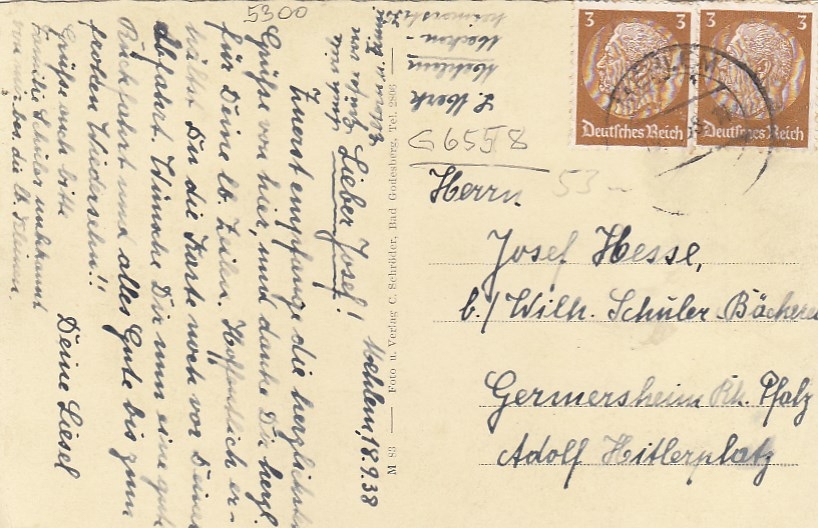 5300
Mehlem, 18.9.38
Lieber Josef!
Zuerst empfange die herzlichsten
Grüße von hier, und danke Dir herzl.
für Deine lb. Zeilen. Hoffentlich er-
hälst Du die Karte noch vor Deiner
Abfahrt. Wünsche Dir nun eine gute
Rückfahrt und alles Gute bis zum
frohen Wiedersehn!!
Deine Liesel
Grüße auch bitte
Familie Schüler unbekannt
von mir bes. die lb. Kleinen.
M 83 — Foto u. Verlag C. Schröder, Bad Godesberg, Tel. 2806
L. Merk
Mehlem
G 6558
53
3
Deutsches Reich
3
Deutsches Reich
Herrn
Josef Hesse,
b./ Wilh. Schüler-Bäckerei
Germersheim Rh. Pfalz
Adolf Hitlerplatz